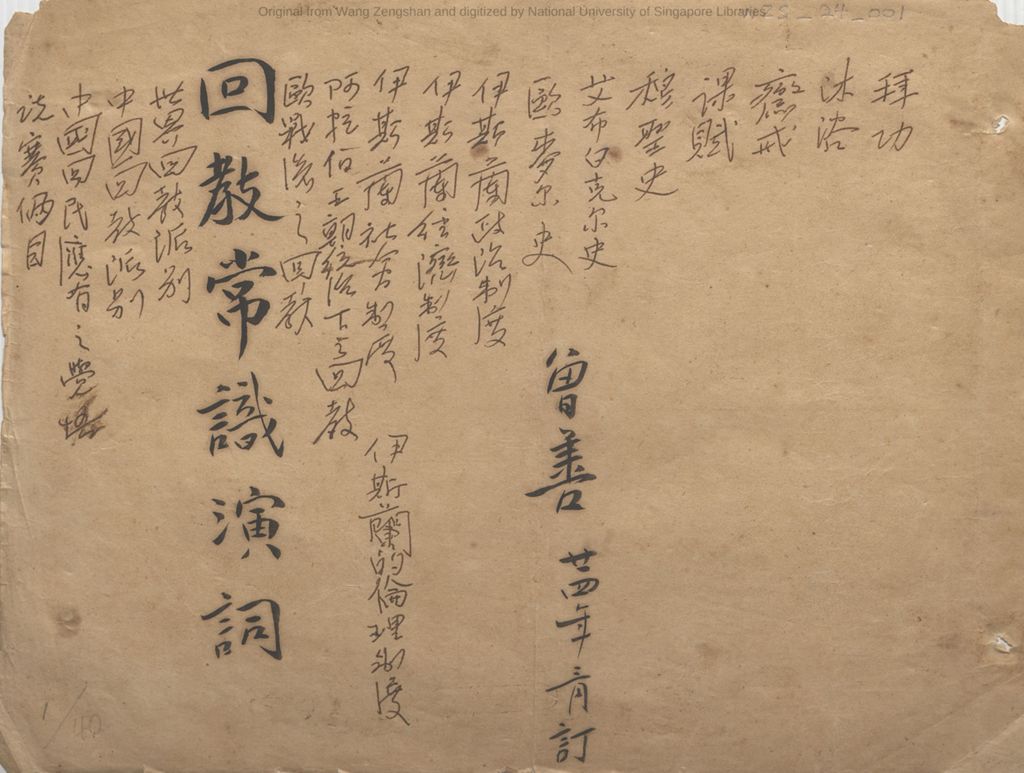 Original from Wang Zengshan and digitized by National University of Singapore Libraries
WZS_24_001
拜功
沐浴
齋戒
課賦
穆聖史
艾布白克尔史
歐麥尔史
曾善 廿四年 訂
伊斯蘭政治制度
伊斯蘭经濟制度
伊斯蘭社会制度
伊斯蘭的倫理制度
阿拉伯王朝統治下之回教
歐戰後之回教
回教常識演詞
世界回教派别
中國回教派别
中國回民應有之覺悟
説賽俩目
1/40